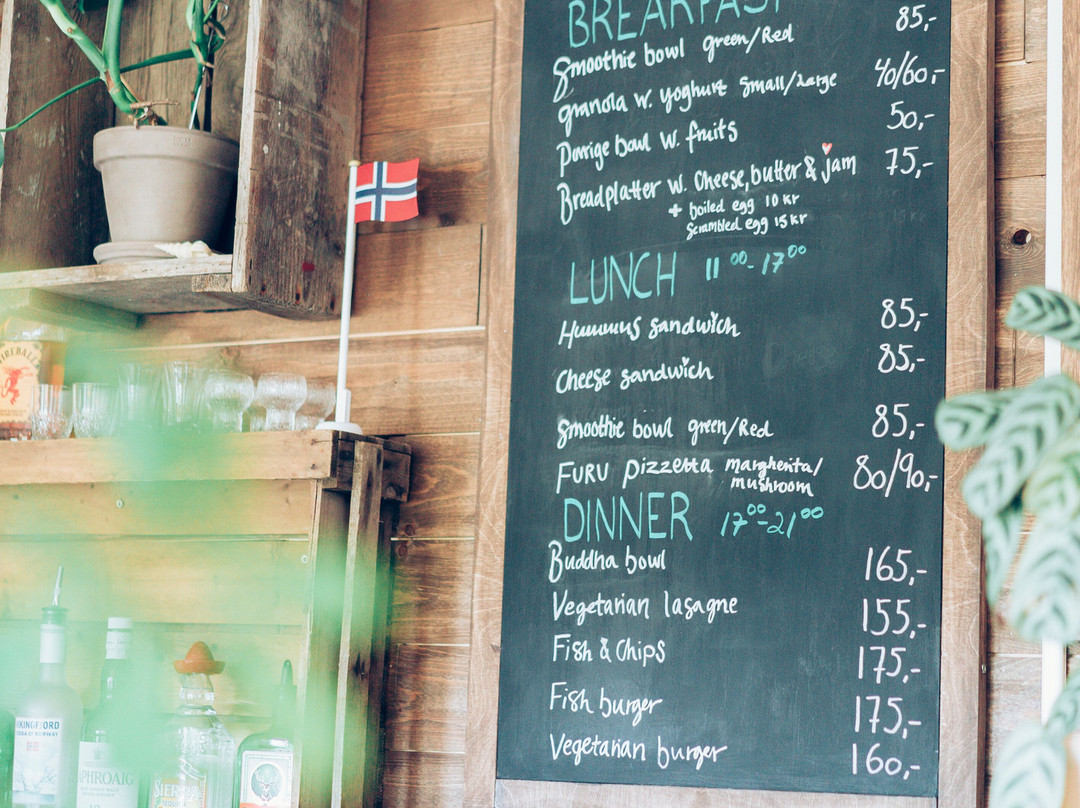 BREAKFAST
Smoothie bowl green/Red 85,-
granola w. yoghurt small/Large 40/60,-
Porrige bowl w. fruits 50,-
Breadplatter w. Cheese, butter & jam 75,-
+ boiled egg 10 kr
Scrambled egg 15 kr
LUNCH 11 00 - 17 00
Hummus sandwich 85,-
Cheese sandwich 85,-
Smoothie bowl green/Red 85,-
FURU Pizzetta margherita/ 80/90,-
mushroom
DINNER 17 00 - 21 00
Buddha bowl 165,-
Vegetarian lasagne 155,-
Fish & Chips 175,-
Fish burger 175,-
Vegetarian burger 160,-
FIREBALL
VIKINGFJORD
LAPHROAIG
SIERRA